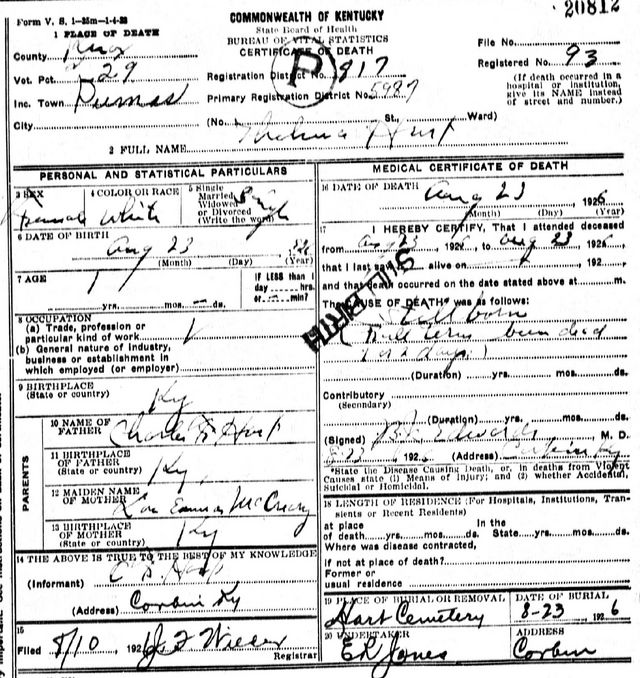 Form V. S. 1-25m-1-4-22
COMMONWEALTH OF KENTUCKY
State Board of Health
BUREAU OF VITAL STATISTICS
CERTIFICATE OF DEATH
20812
1 PLACE OF DEATH
County Knox
Vot. Pct. 29
Inc. Town
City
Registration District No. 817
Primary Registration District No. 5987
(No. St., Ward)
File No.
Registered No. 93
(If death occurred in a
hospital or institution,
give its NAME instead
of street and number.)
2 FULL NAME Thelma Hart
PERSONAL AND STATISTICAL PARTICULARS
3 SEX Female
4 COLOR OR RACE White
5 Single
Married
Widowed
or Divorced
(Write the word) Single
6 DATE OF BIRTH Aug 23
(Month) (Day) (Year)
7 AGE
yrs. mos. ds.
IF LESS than 1
day hrs.
or min?
8 OCCUPATION
(a) Trade, profession or
particular kind of work
(b) General nature of industry,
business or establishment in
which employed (or employer)
9 BIRTHPLACE
(State or country) Ky
PARENTS
10 NAME OF
FATHER Charles B. Hart
11 BIRTHPLACE
OF FATHER
(State or country) Ky.
12 MAIDEN NAME
OF MOTHER Emma McCrary
13 BIRTHPLACE
OF MOTHER
(State or country) Ky
14 THE ABOVE IS TRUE TO THE BEST OF MY KNOWLEDGE
(Informant) C B Hart
(Address) Corbin Ky
15
Filed 9/10, 192 J. F. Registrar
MEDICAL CERTIFICATE OF DEATH
16 DATE OF DEATH Aug 23 1926
(Month) (Day) (Year)
17 I HEREBY CERTIFY, That I attended deceased
from Aug 23 1926, to Aug 23 1926
that I last saw alive on 192
and that death occurred on the date stated above at m.
The CAUSE OF DEATH* was as follows:
Still born
STILL BIRTH
(Full term been dead
1 or 2 days)
(Duration) yrs. mos. ds.
Contributory
(Secondary)
(Duration) yrs. mos. ds.
(Signed) Edwards M. D.
8-23 192 (Address) Corbin Ky
*State the Disease Causing Death, or, in deaths from Violent
Causes state (1) Means of Injury; and (2) whether Accidental,
Suicidal or Homicidal.
18 LENGTH OF RESIDENCE (For Hospitals, Institutions, Tran-
sients or Recent Residents)
at place In the
of death yrs. mos. ds. State yrs. mos. ds.
Where was disease contracted,
if not at place of death?
Former or
usual residence
19 PLACE OF BURIAL OR REMOVAL DATE OF BURIAL
Hart Cemetery 8-23 1926
20 UNDERTAKER ADDRESS
E L Jones Corbin